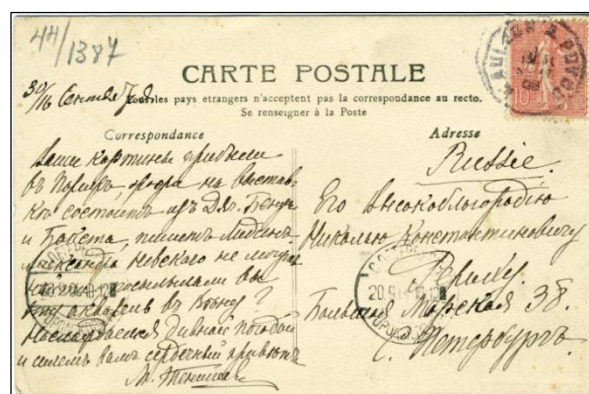 44/1387
CARTE POSTALE
30/16 Сентября
Tous les pays etrangers n'acceptent pas la correspondance au recto.
Se renseigner à la Poste
Correspondance
Adresse
Ваши картины прибыли
въ Парижъ, жюри на выстав-
кѣ состоитъ изъ Дяг. Бенуа
и Бакста,
Александра Невскаго не могутъ
посылали вы
эту акварель въ Вѣну?
Наслаждаемся дивной погодой
и шлемъ вамъ сердечный привѣтъ
М. Тенишева
Russie.
Его Высокоблагородію
Николаю Константиновичу
Рериху.
Большая Морская 38.
С. Петербургъ.
10